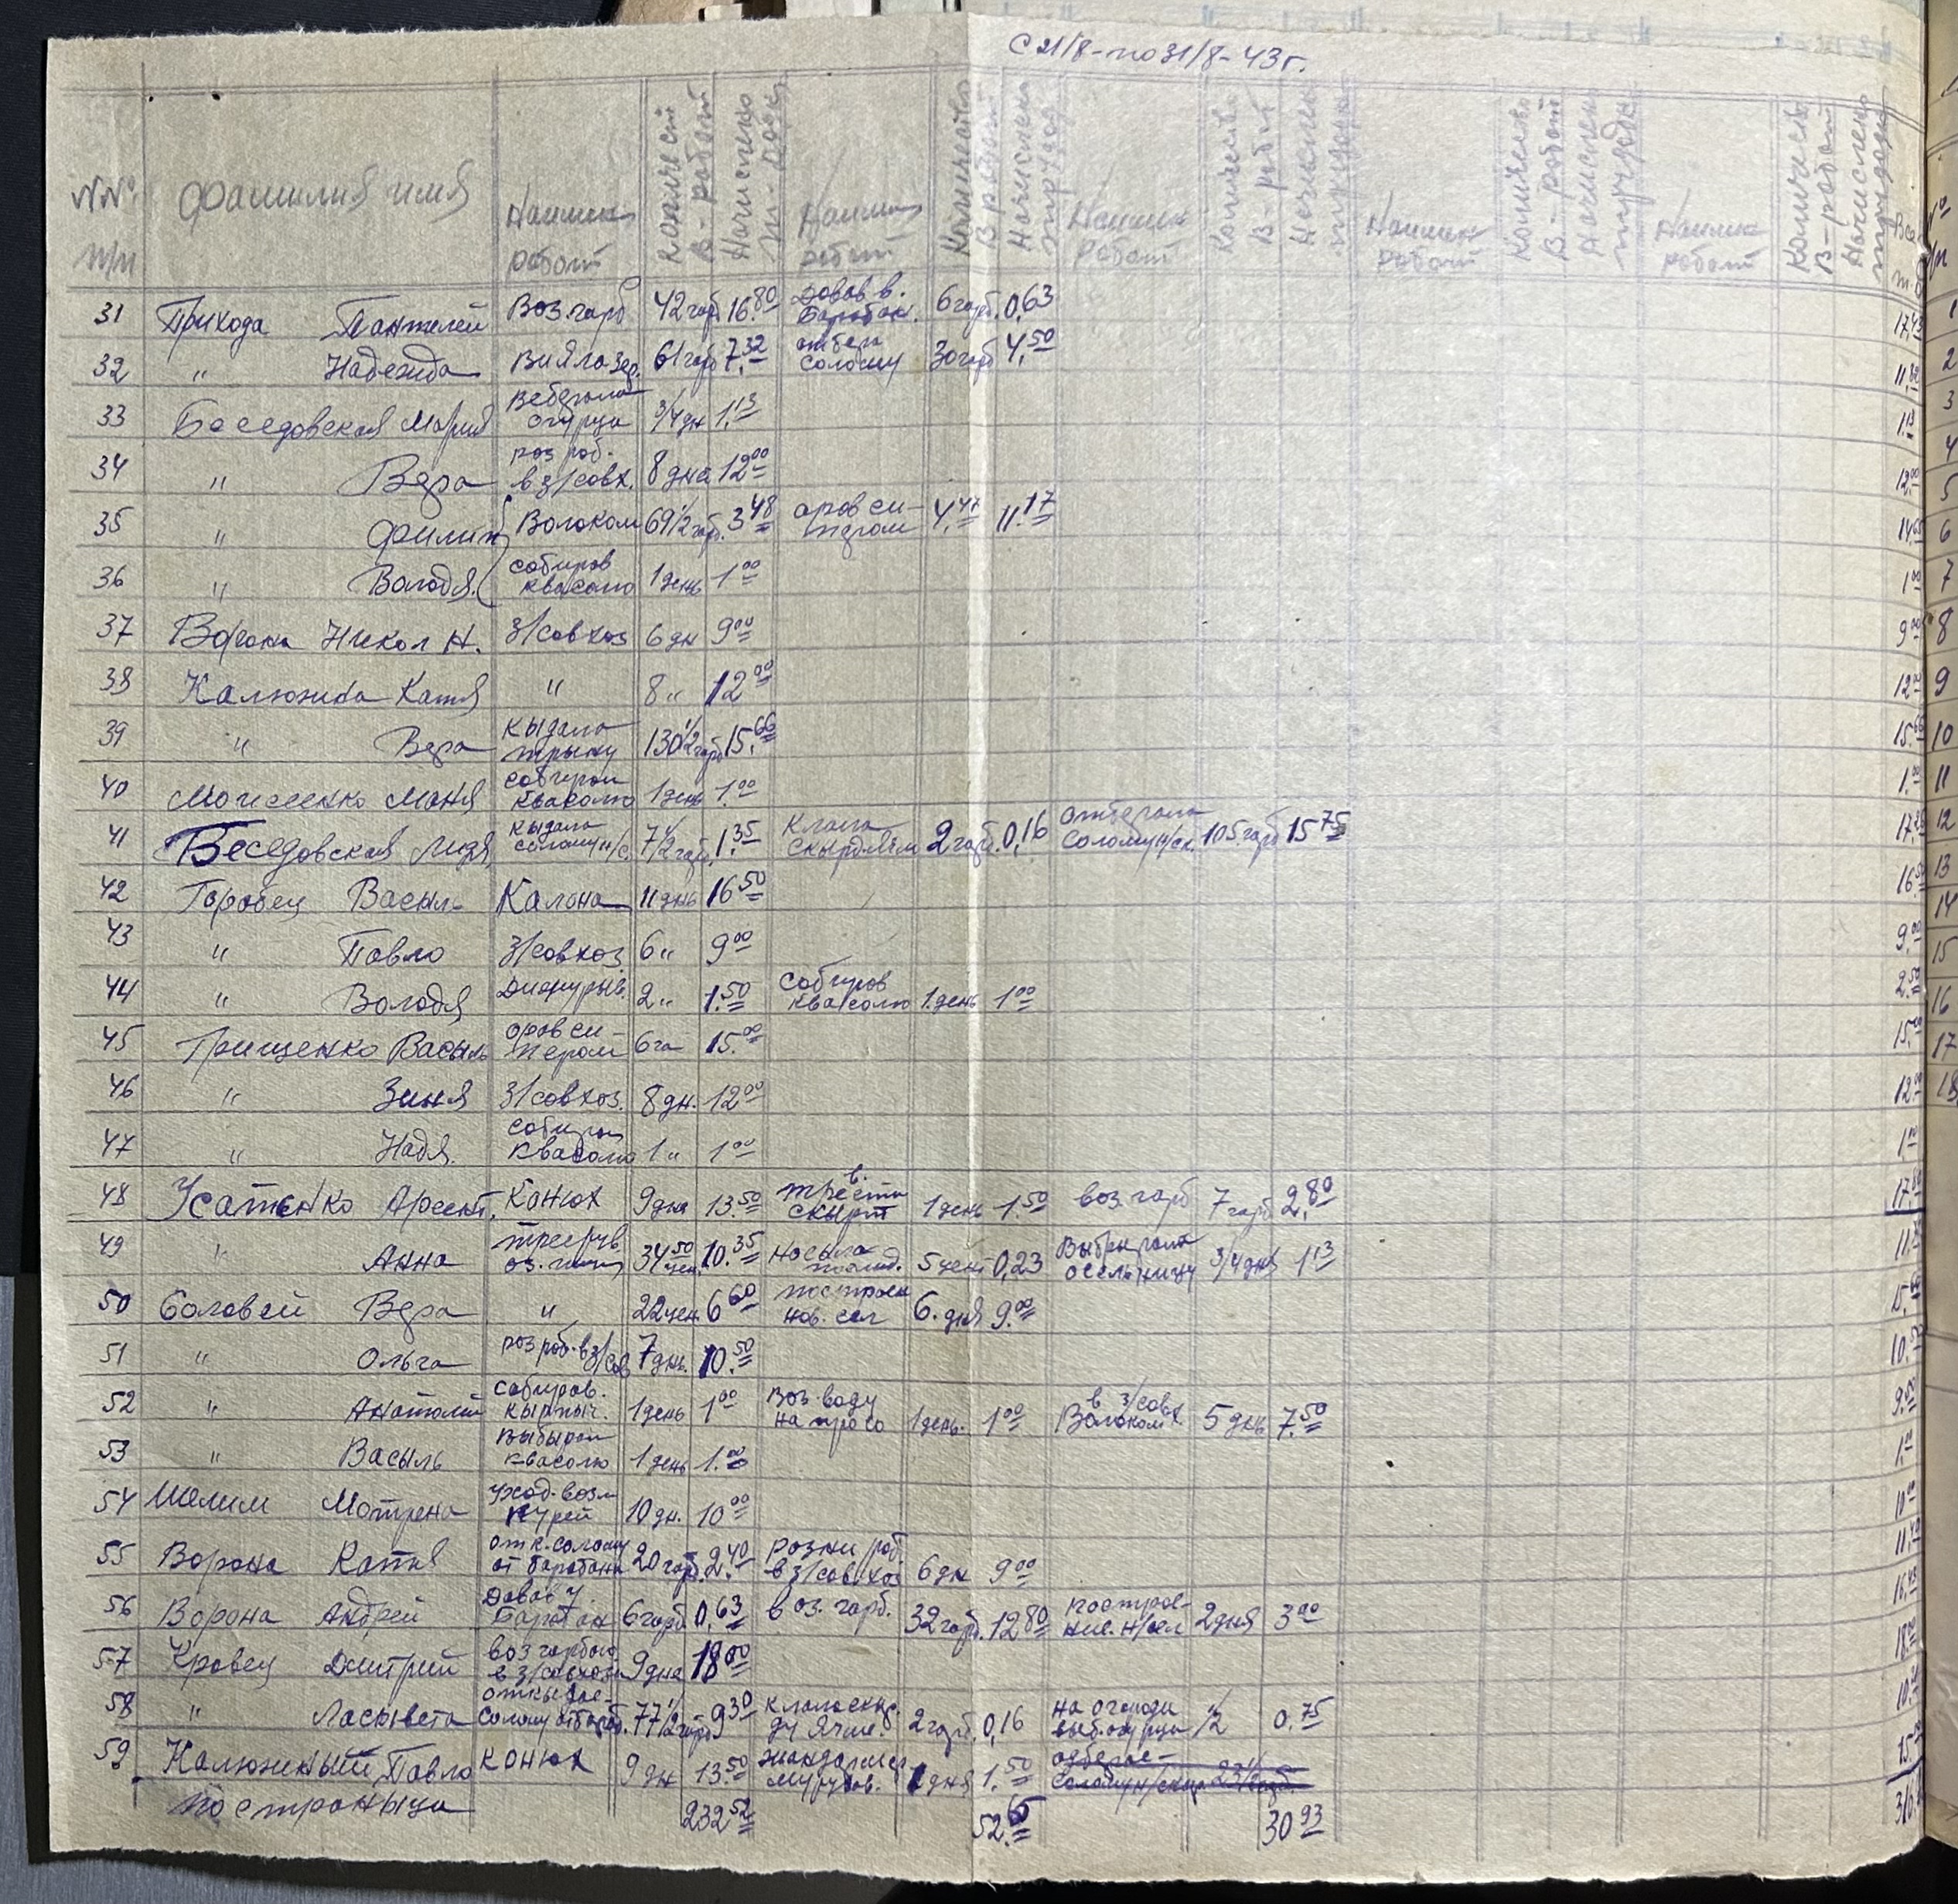 С 21/8 - по 31/8 - 43 г.
№№ п/п Фамилия имя Наимен работ Количест В-работ Начислено тр-дней Наимен работ Количество В работ Начислен трудод Наимен работ Количеств В-работ Начислен трудодн Наимен работ Количеств В-работ Начислен трудодн Наимен работ Количеств В-работ Начислень трудодень Все т.д
31 Прихода Пантелей Воз. гарб 42 гарб 16.80 Довав в. Барабан. 6 гарб. 0,63 17,43
32 " Надежда Вияла зер. 61 гарб 7,32 отбера солому 30 гарб 4,50 11.82
33 Беседовская Мария огирца 3/4 дн 1.13 1.13
34 " Вера роз роб. в з/совх. 8 дне 12.00 12.00
35 " Филип Волоком 69 1/2 гарб. 3.48 оров си-перам 4.47 11.17 14.65
36 " Володя. собиров квасолю 1 день 1.00 1.00
37 Ворона Никол Н. З/совхоз 6 дн 9.00 9.00
38 Калюжна Катя " 8 " 12.00 12.00
39 " Вера кыдала трыну 130 1/2 гарб 15.66 15.66
40 Моисеенко Маня собирал квасолю 1 день 1.00 1.00
41 Беседовская Лидя кыдала солому н/с. 7 1/2 гарб. 1.35 Клала скырд 2 гарб. 0,16 отберала солому н/ск. 105 гарб 15.75 17.26
42 Горобец Васыль Калона 11 день 16.50 16.50
43 " Павло З/совхоз. 6 " 9.00 9.00
44 " Володя Дижурыв. 2 " 1.50 Собиров квасолю 1. день 1.00 2.50
45 Грищенко Васыль оров си-перам 6 га 15.00 15.00
46 " Зиня З/совхоз. 8 дн. 12.00 12.00
47 " Надя. собирал квасолю 1 " 1.00 1.00
48 Усатенко Арсент. Конюх 9 дне 13.50 в. скырт 1 день 1.50 воз. гарб 7 гарб 2.80 17.80
49 " Анна оз. 34.50 цен. 10.35 Носыла 5 цент 0,23 3/4 дня 1.13 11.71
50 Соловей Вера " 22 цен. 6.60 построен нов. сел 6. дня 9.00 15.60
51 " Ольга роз роб. в з/сов 7 дн. 10.50 10.50
52 " Анатолий собиров. кырпыч. 1 день 1.00 воз. воду на просо 1 день. 1.00 в з/совх Волоком 5 день 7.50 9.50
53 " Васыль Выбырал квасолю 1 день 1.00 1.00
54 Шелим Мотрена Уход. возл курей 10 дн. 10.00 10.00
55 Ворона Катя отк. солому от барабана 20 гарб. 2.40 розни роб. в з/совхоз 6 дн 9.00 11.40
56 Ворона Андрей Довав у. Барабан 6 гарб 0,63 воз. гарб. 32 гарб. 12.80 построе-ние. н/сел 2 дня 3.00 16.43
57 Кровец Дмитрий воз гарбою в з/совхози 9 дне 18.00 18.00
58 " Ласывета откыдае-солому от бараб. 77 1/2 гарб 9.30 клала скыр-ду Ячме. 2 гарб. 0,16 на огороди выб. огурца 1/2 0.75 10.21
59 Калюжный Павло конюх 9 дн 13.50 1 дня 1.50 одберае-солому н/скир 23 1/2 гарб. 15.00
по страныца 232.52 52.65 30.93 316.
№ п/п
1
2
3
4
5
6
7
8
9
10
11
12
13
14
15
16
17
18